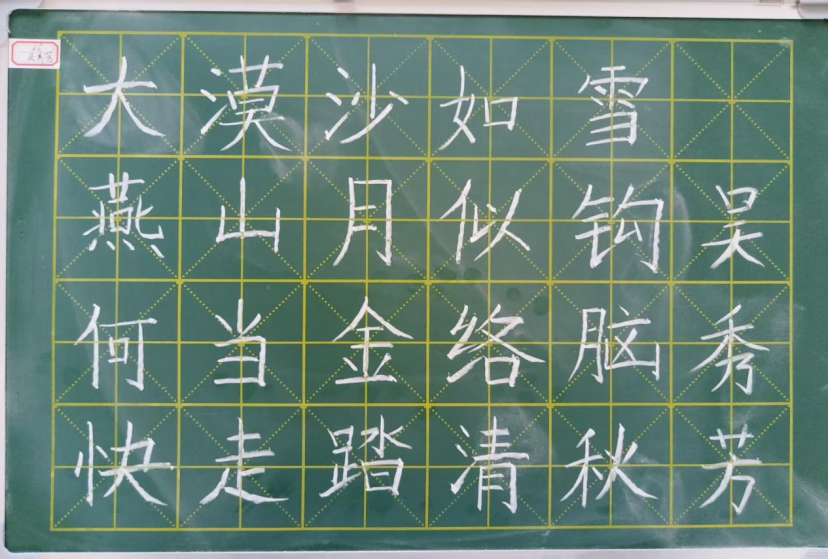 大漠沙如雪
燕山月似钩 吴
何当金络脑 秀
快走踏清秋 芳